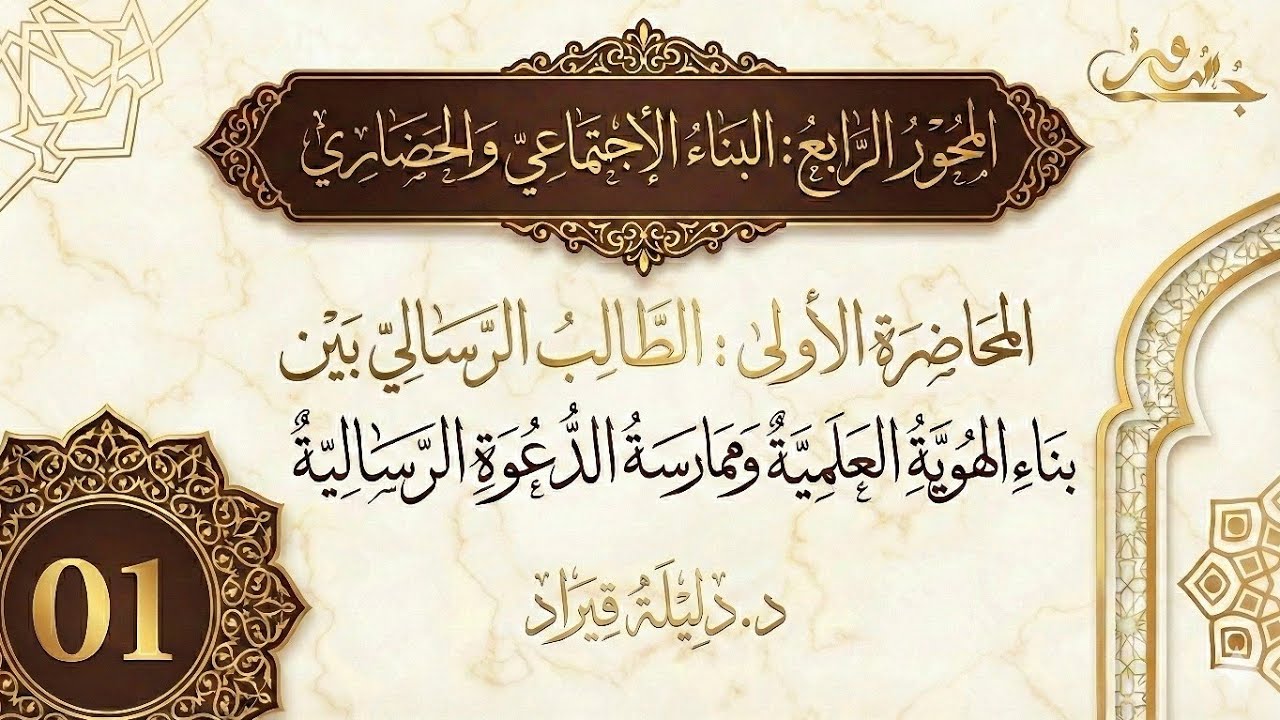 جسور
المحْوَرُ الرَّابعُ: البنَاءُ الاجْتِمَاعِيّ وَالحَضَارِي
المحَاضِرَةِ الأولىٰ: الطَّالِبُ الرَّسَاليّ بَيْن
بنَاءِ الهُويَّةُ العَلَمِيَّةٌ وَممَارسَةُ الدُّعُوَةِ الرَّسَاليَّةٌ
د. دَلِيْلَةُ قِيرَاد
01